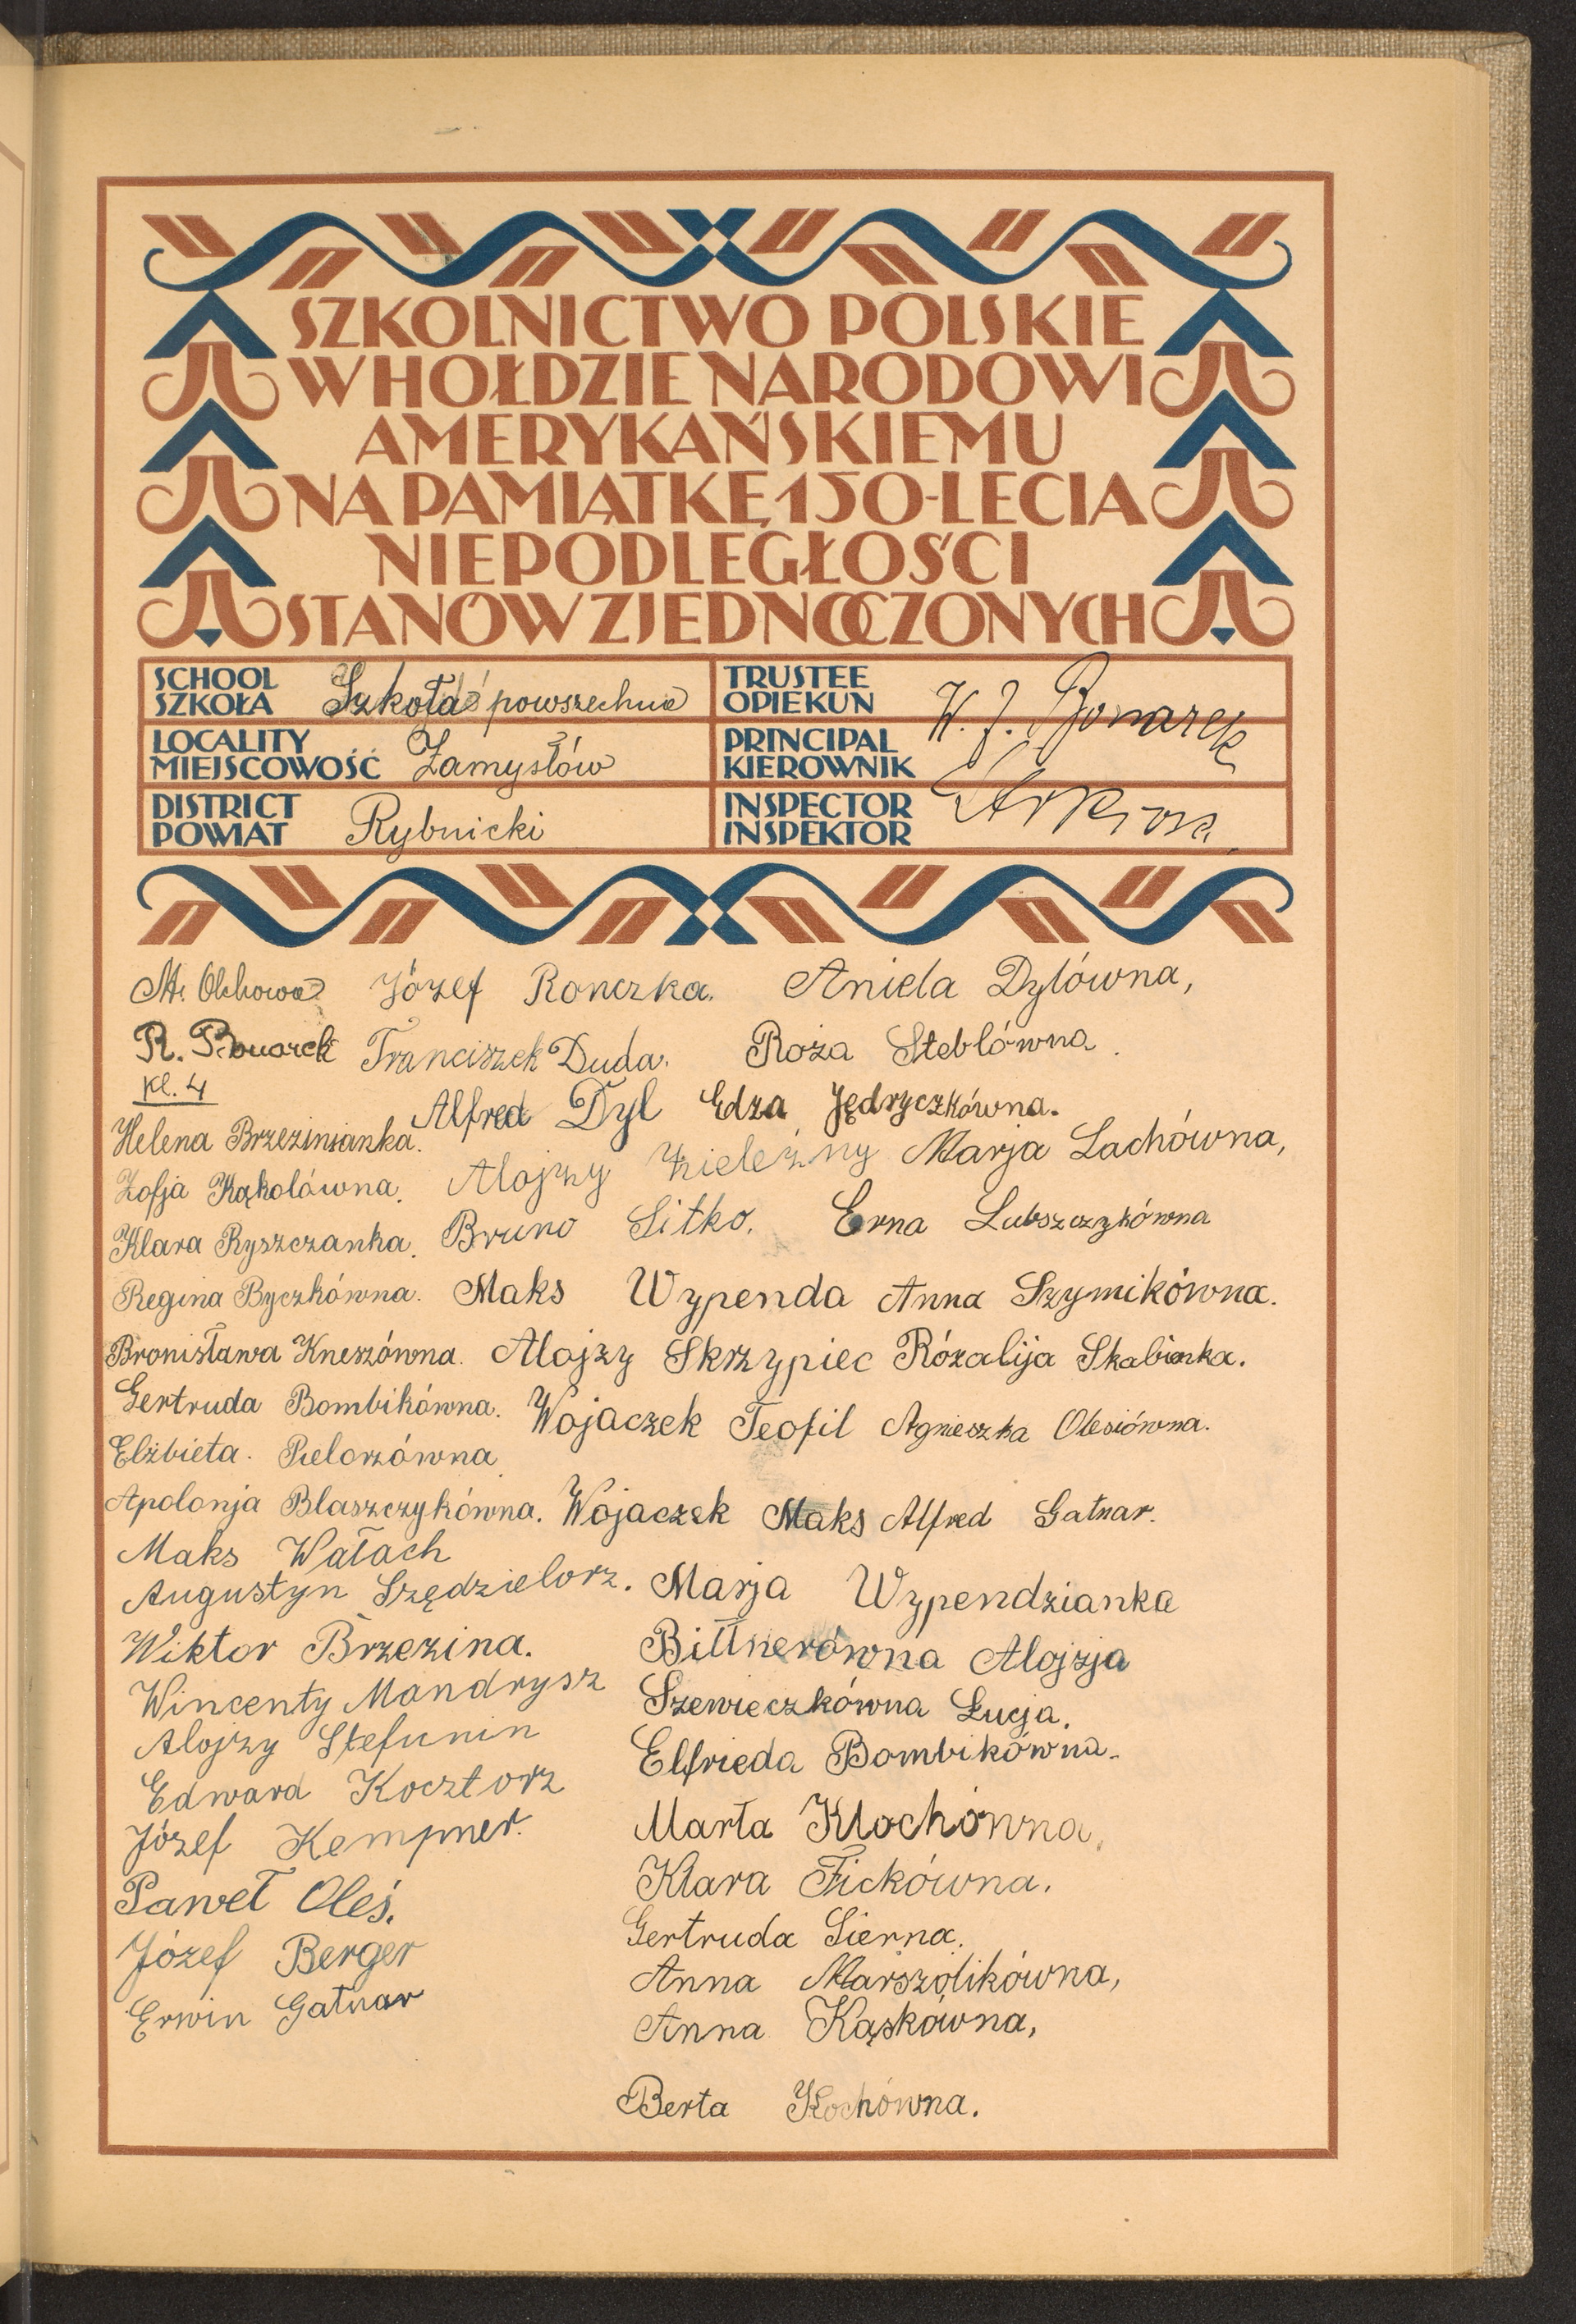 SZKOLNICTWO POLSKIE
W HOŁDZIE NARODOWI
AMERYKAŃSKIEMU
NA PAMIĄTKĘ 150-LECIA
NIEPODLEGŁOŚCI
STANÓW ZJEDNOCZONYCH
SCHOOL
SZKOŁA Szkoła powszechna
LOCALITY
MIEJSCOWOŚĆ Zamysłów
DISTRICT
POWIAT Rybnicki
TRUSTEE
OPIEKUN
PRINCIPAL
KIEROWNIK W. J. Bonarek
INSPECTOR
INSPEKTOR
M. Olchowa Józef Ronczka. Aniela Dylówna,
R. Bonarek Franciszek Duda. Roża Steblówna.
Kl. 4
Alfred Dyl Edza Jędryczkówna.
Helena Brzezinianka.
Zofja Kąkolówna. Alojzy Zieleźny Marja Lachówna,
Klara Ryszczanka. Bruno Sitko. Erna Lubszczykówna
Regina Byczkówna. Maks Wypenda Anna Szymikówna.
Bronisława Kneszówna. Alojzy Skrzypiec Rózalija Skabianka.
Gertruda Bombikówna. Wojaczek Teofil Agnieszka Olesiówna.
Elżbieta. Pielorzówna
Apolonja Blaszczykówna. Wojaczek Maks Alfred Gatnar.
Maks Wałach
Augustyn Szędzielorz. Marja Wypendzianka
Wiktor Brzezina. Bittnerówna Alojzja
Wincenty Mandrysz Szewieczkówna Łucja.
Alojzy Stefunin Elfrieda Bombikówna.
Edward Kocztorz
Józef Kempner. Marta Klochówna,
Paweł Oleś. Klara Fickówna.
Józef Berger Gertruda Sierna.
Erwin Gatnar Anna Marszolikówna,
Anna Kąskówna,
Berta Kochówna.